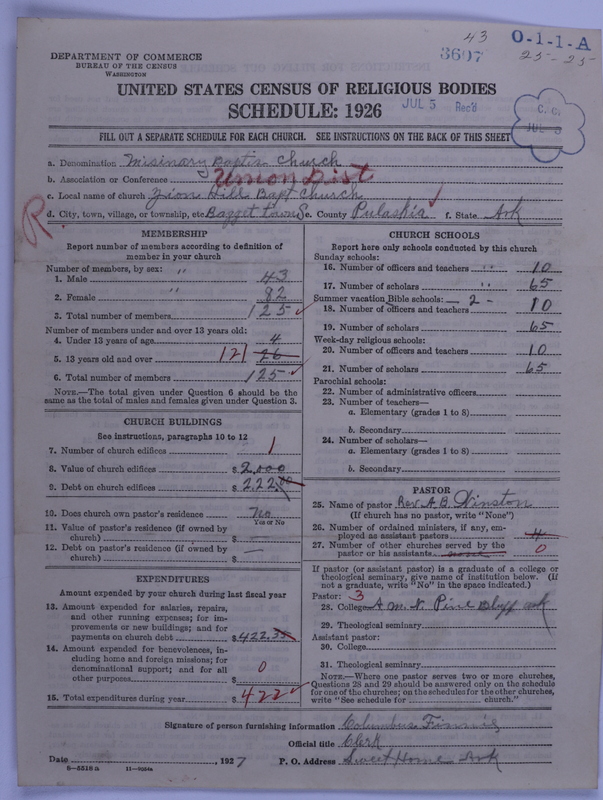 43
O-1-1-A
3697
25-25
DEPARTMENT OF COMMERCE
BUREAU OF THE CENSUS
WASHINGTON
UNITED STATES CENSUS OF RELIGIOUS BODIES
SCHEDULE: 1926
JUL 5 Rec'd
C. C.
JUL
FILL OUT A SEPARATE SCHEDULE FOR EACH CHURCH. SEE INSTRUCTIONS ON THE BACK OF THIS SHEET
a. Denomination Misinary Baptis Church
b. Association or Conference Union Dist
c. Local name of church Zion Hill Bapt Church
d. City, town, village, or township, etc. e. County Pulaskia f. State Ark
R
MEMBERSHIP
Report number of members according to definition of
member in your church
Number of members, by sex: "
1. Male 43
2. Female " 82
3. Total number of members 125
Number of members under and over 13 years old:
4. Under 13 years of age 4
5. 13 years old and over 121 26
6. Total number of members 125
NOTE.—The total given under Question 6 should be the
same as the total of males and females given under Question 3.
CHURCH BUILDINGS
See instructions, paragraphs 10 to 12
7. Number of church edifices 1
8. Value of church edifices $ 2,000
9. Debt on church edifices $ 222.00
10. Does church own pastor's residence No
Yes or No
11. Value of pastor's residence (if owned by
church) $ —
12. Debt on pastor's residence (if owned by
church) $ —
EXPENDITURES
Amount expended by your church during last fiscal year
13. Amount expended for salaries, repairs,
and other running expenses; for im-
provements or new buildings; and for
payments on church debt $ 422.35
14. Amount expended for benevolences, in-
cluding home and foreign missions; for
denominational support; and for all
other purposes $ 0
15. Total expenditures during year $ 422
CHURCH SCHOOLS
Report here only schools conducted by this church
Sunday schools:
16. Number of officers and teachers " 10
17. Number of scholars " 65
Summer vacation Bible schools: — 2 -
18. Number of officers and teachers 10
19. Number of scholars 65
Week-day religious schools:
20. Number of officers and teachers 10
21. Number of scholars 65
Parochial schools:
22. Number of administrative officers
23. Number of teachers—
a. Elementary (grades 1 to 8)
b. Secondary
24. Number of scholars—
a. Elementary (grades 1 to 8)
b. Secondary
PASTOR
25. Name of pastor Rev. A.B. Winston
(If church has no pastor, write "None")
26. Number of ordained ministers, if any, em-
ployed as assistant pastors 4
27. Number of other churches served by the
pastor or his assistants none 0
If pastor (or assistant pastor) is a graduate of a college or
theological seminary, give name of institution below. (If
not a graduate, write "No" in the space indicated.)
Pastor: 3
28. College A.M.N. Pine Bluff Ark
29. Theological seminary
Assistant pastor:
30. College
31. Theological seminary
NOTE.—Where one pastor serves two or more churches,
Questions 28 and 29 should be answered only on the schedule
for one of the churches; on the schedules for the other churches,
write "See schedule for church."
Signature of person furnishing information Columbus Finnie
Official title Clerk
Date , 1927 P. O. Address Sweet Home Ark